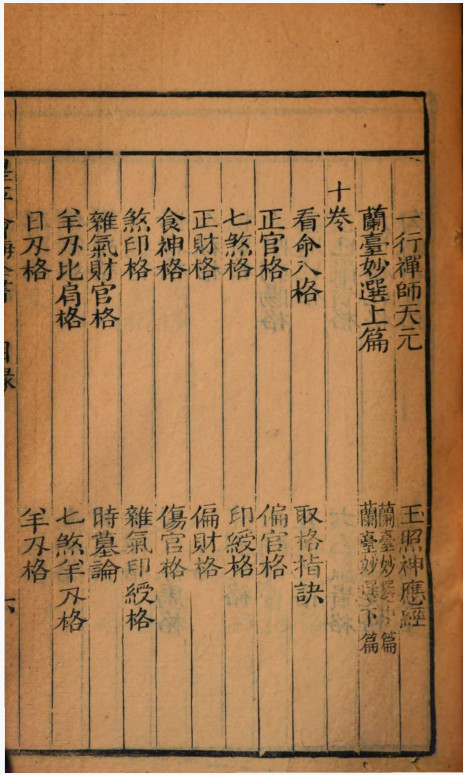 一行禪師天元　玉照神應經
蘭臺妙選上篇　蘭臺妙選篇
蘭臺妙選下篇
十卷
看命入格　取格指訣
正官格　偏官格
七煞格　印綬格
正財格　偏財格
食神格　傷官格
煞印格　雜氣印綬格
雜氣財官格　時墓論
羊刃比肩格　七煞羊刃格
日刃格　羊刃格
目錄　六